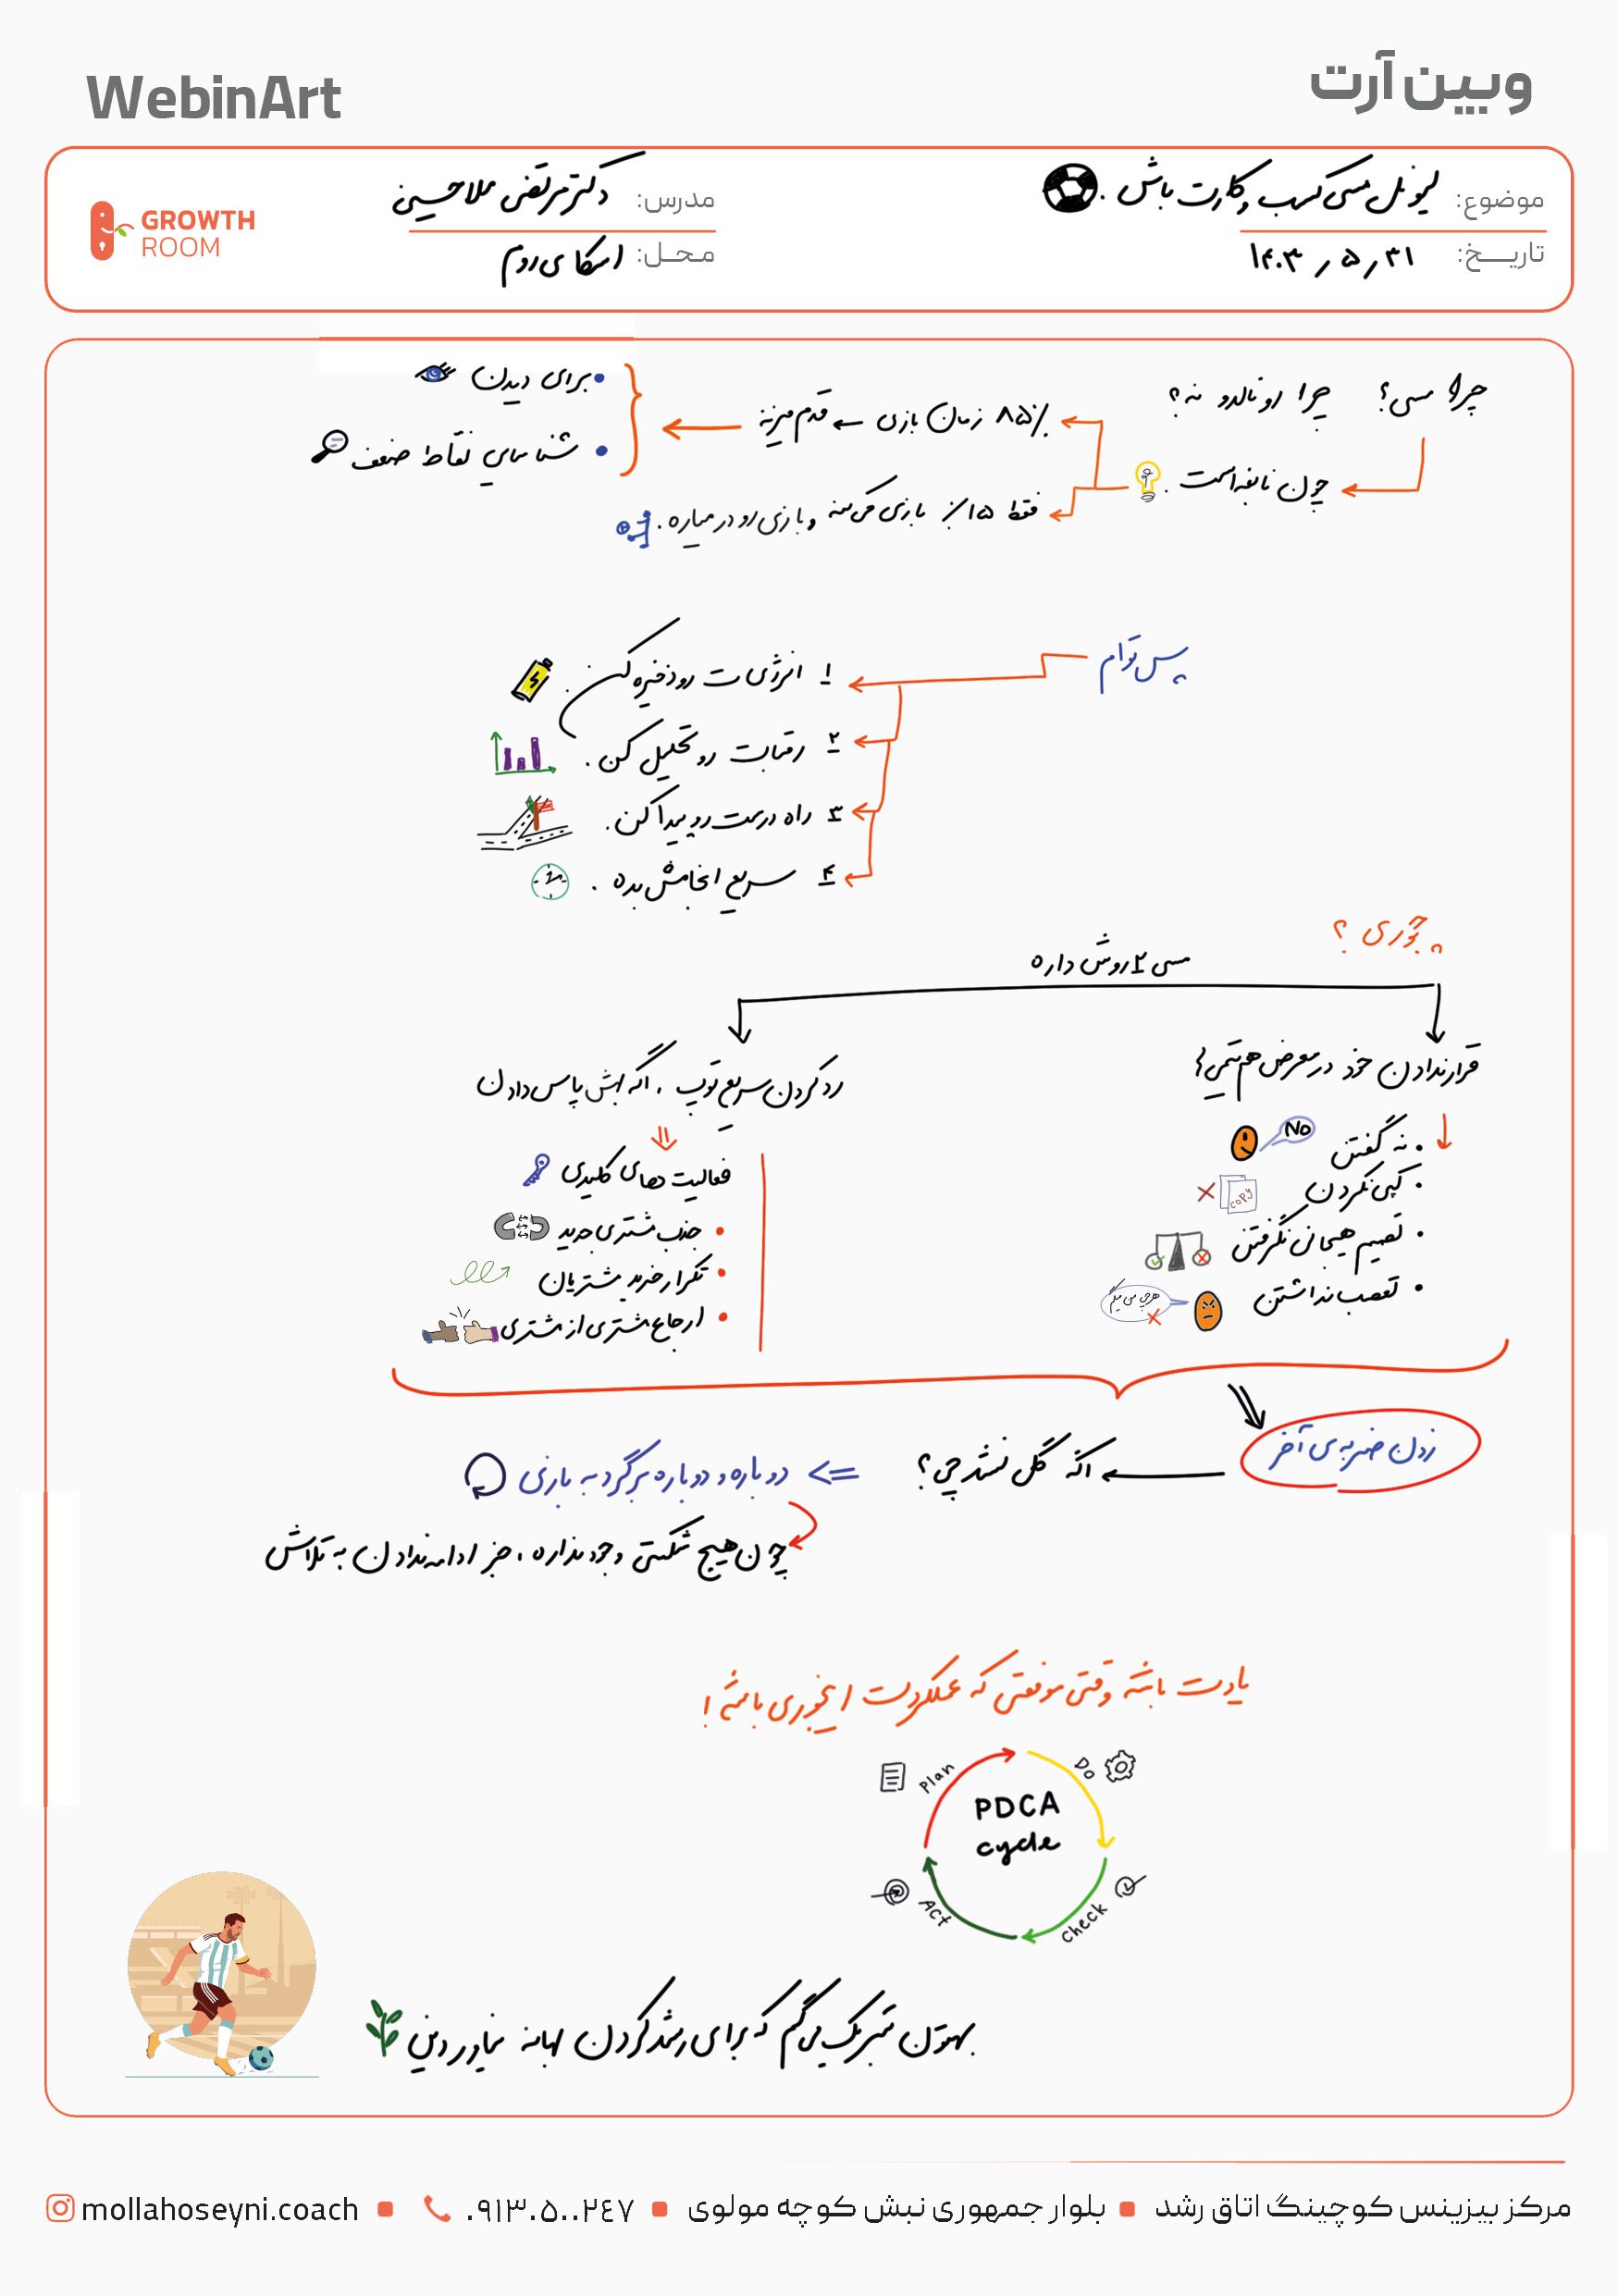 WebinArt
وبین آرت
موضوع: لیونل مسی کسب و کارت باش.
تاریخ: ۱۴۰۳/۵/۳۱
مدرس: دکتر مرتضی ملاحسینی
محل: اسکای روم
GROWTH
ROOM
چرا مسی؟ چرا رونالدو نه؟
چون نابغه است.
۸۵٪ زمان بازی ← قدم میزنه
• برای دیدن
• شناسایی نقاط ضعف
فقط ۱۵٪ بازی می‌کنه و بازی رو در میاره.
پس توام
۱ انرژی ات رو ذخیره کن.
۲ رقابت رو تحلیل کن.
۳ راه درست رو پیدا کن.
۴ سریع انجامش بده.
چجوری؟
مسی ۲ روش داره
قرار ندادن خود در معرض هم تیمی!
• نه گفتن
No
• کپی نکردن
copy
• تصمیم هیجانی نگرفتن
• تعصب نداشتن
هرچی من میگم
رد کردن سریع توپ، اگه بهش پاس دادن
فعالیت های کلیدی
• جذب مشتری جدید
• تکرار خرید مشتریان
• ارجاع مشتری از مشتری
زدن ضربه ی آخر
اگه گل نشد چی؟
دوباره و دوباره برگرد به بازی
چون هیچ شکستی وجود نداره، جز ادامه ندادن به تلاش
یادت باشه وقتی موفقی که عملکردت اینجوری باشه!
Plan
Do
PDCA
cycle
Act
Check
بهتون تبریک می‌گم که برای رشد کردن بهانه نیاوردین
مرکز بیزینس کوچینگ اتاق رشد ▪ بلوار جمهوری نبش کوچه مولوی ▪ ۰۹۱۳۰۵۰۰۲۴۷ ▪ mollahoseyni.coach